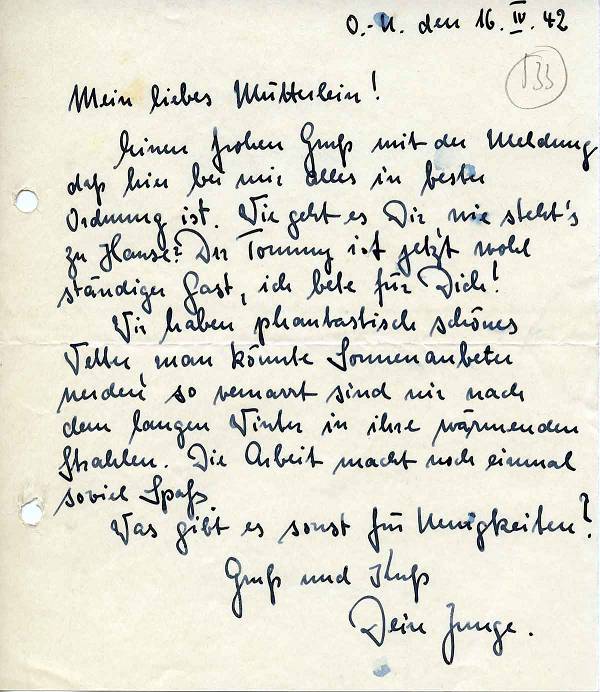 O.-U. den 16. IV. 42
133
Mein liebes Mütterlein!
Einen frohen Gruß mit der Meldung
daß hier bei mir alles in bester
Ordnung ist. Wie geht es Dir wie steht's
zu Hause? Der Tommy ist jetzt wohl
ständiger Gast, ich bete für Dich!
Wir haben phantastisch schönes
Wetter, man könnte Sonnenanbeter
werden so vernarrt sind wir nach
dem langen Winter in ihre wärmenden
Strahlen. Die Arbeit macht noch einmal
soviel Spaß.
Was gibt es sonst für Neuigkeiten?
Gruß und Kuß
Dein Junge.